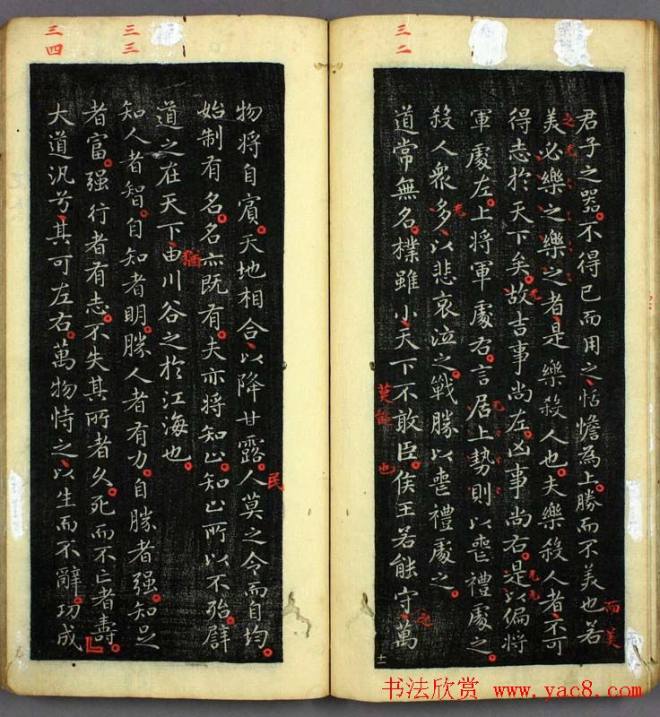 三二
君子之器不得已而用之恬憺為上勝而不美也若
而美
美必樂之樂之者是樂殺人也夫樂殺人者不可
得志於天下矣故吉事尚左凶事尚右是以偏將
軍處左上將軍處右言居上勢則以喪禮處之
殺人衆多以悲哀泣之戰勝以喪禮處之
道常無名樸雖小天下不敢臣侯王若能守萬
之
莫能
也
十一
三三
三四
物將自賓天地相合以降甘露人莫之令而自均
民
始制有名名亦既有夫亦將知止知止所以不殆譬
猶
道之在天下由川谷之於江海也
知人者智自知者明勝人者有力自勝者強知足
者富強行者有志不失其所者久死而不亡者壽
大道汎兮其可左右萬物恃之以生而不辭功成
书法欣赏 www.yac8.com